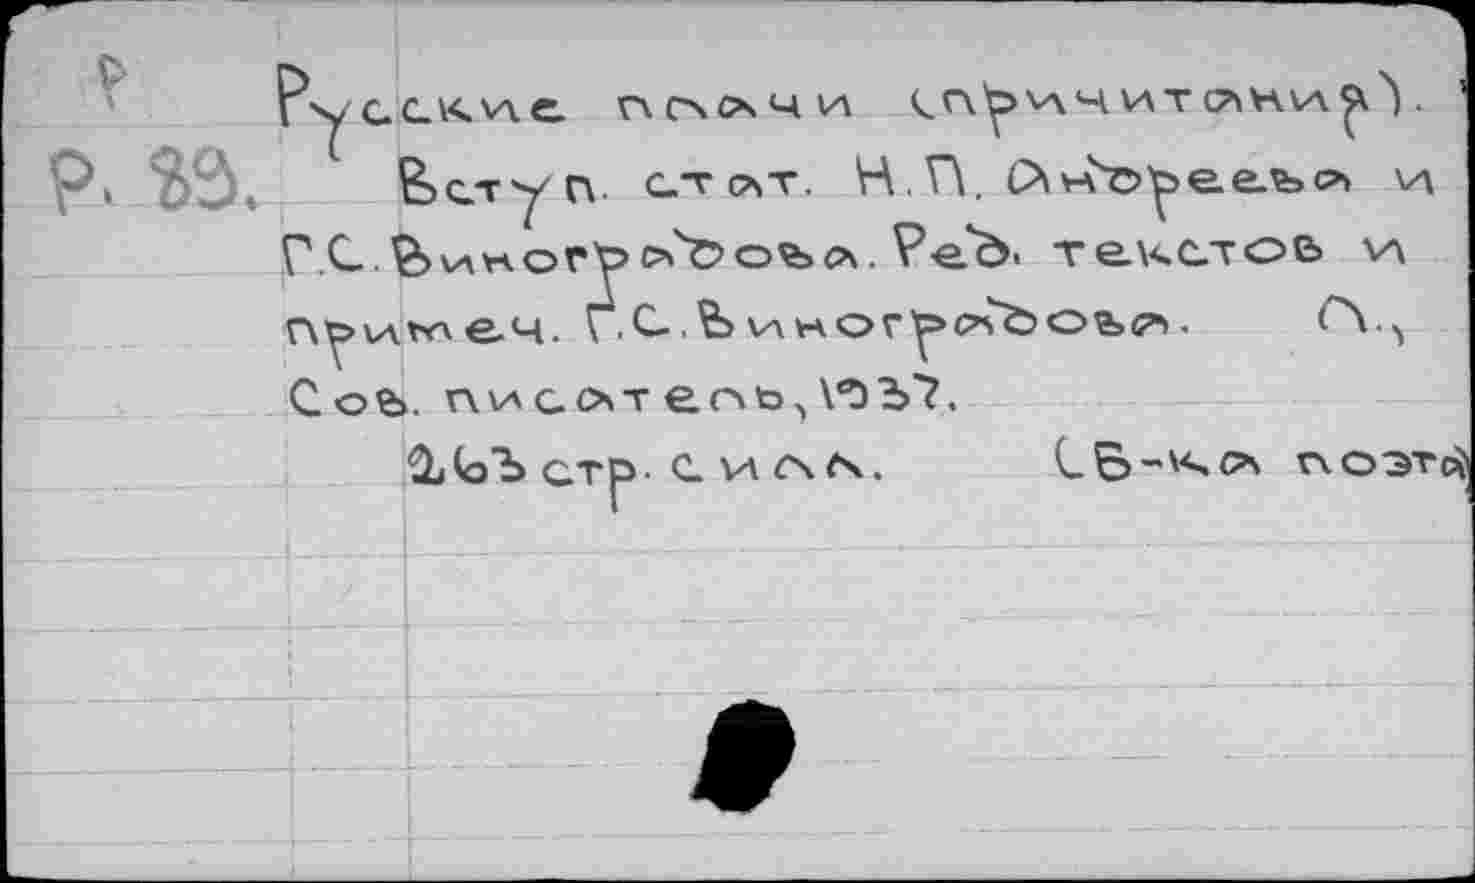 Р
Русские плачи (причитания).
Р. 89.
Вступ. стат. Н.П. Андреева и
Г.С. Виноградова. Ред. текстов и
примеч. Г.С. Виноградова. Л.,
Сов. писатель, 1937.
263 стр. с илл. (Б-ка поэта)